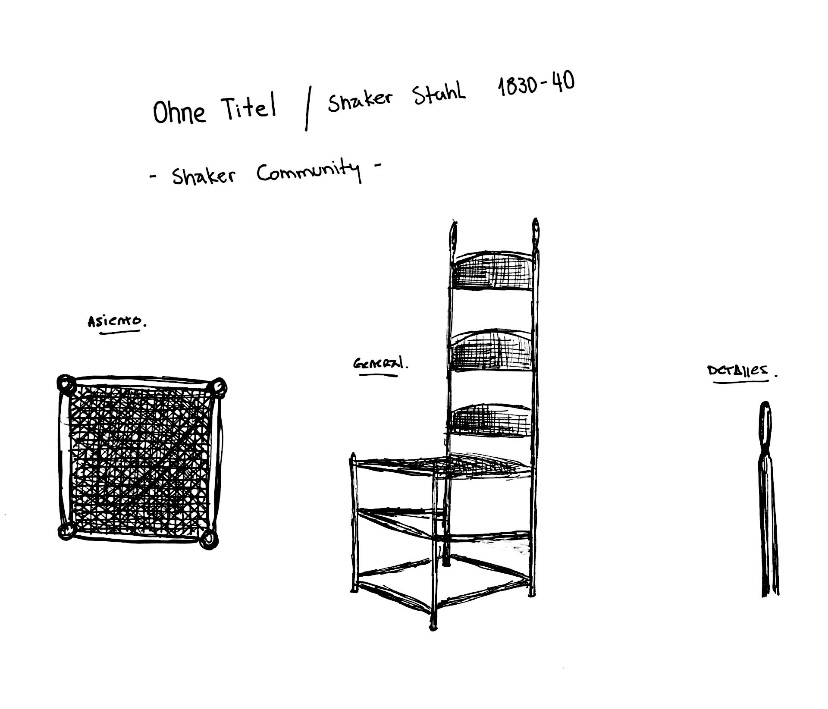 Ohne Titel / Shaker Stuhl 1830-40
- Shaker Community -
Asiento.
General.
Detalles.